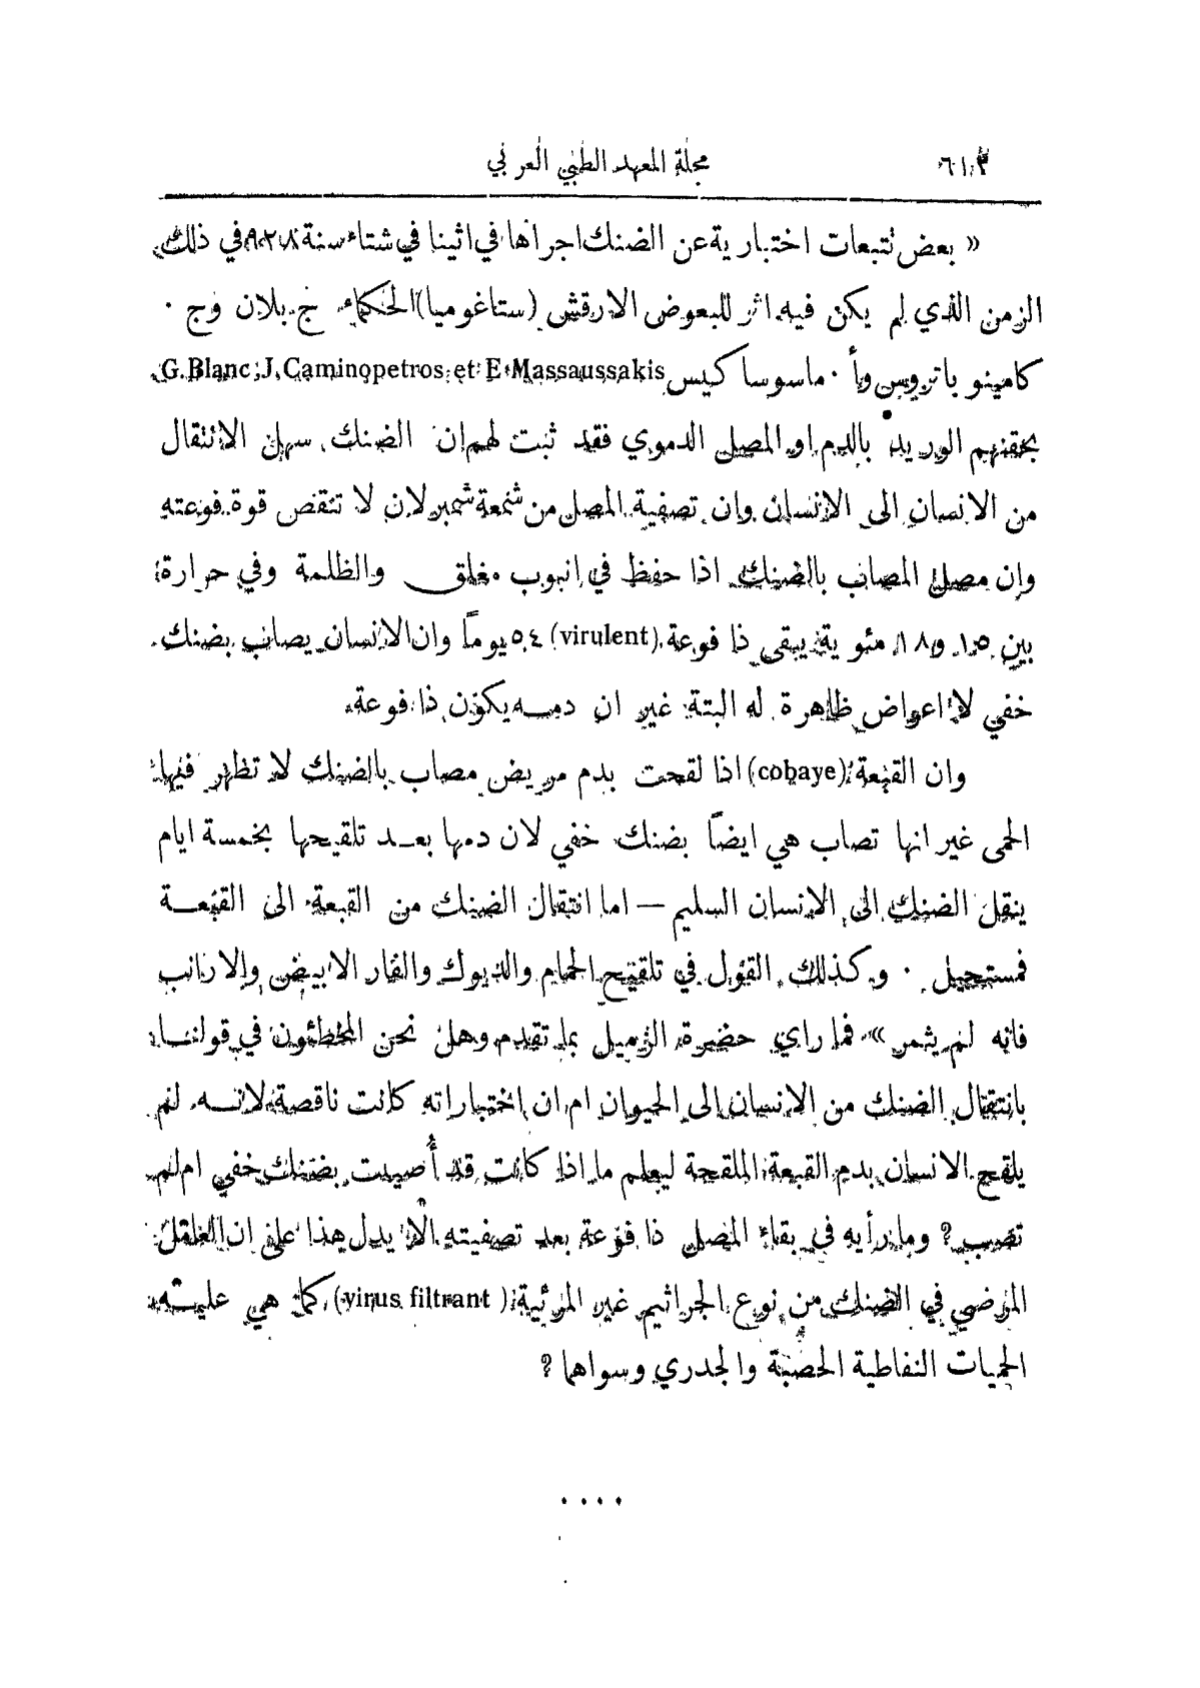 ٦١٢ مجلة المعهد الطبي العربي
« بعض تتبعات اختبارية عن الضنك اجراها في اثينا في شتاء سنة ٩٢٨ في ذلك
الزمن الذي لم يكن فيه اثر للبعوض الارقش (ستاغوميا) الحكماء ج. بلان وج ٠
كامينو باتروس وأ ٠ ماسوسا كيس G. Blanc, J. Caminopetros et E. Massaussakis
بحقنهم الوريد بالدم او المصل الدموي فقد ثبت لهم ان الضنك سهل الانتقال
من الانسان الى الانسان وان تصفية المصل من شمعة شمبرلان لا تنقص قوة فوعته
وان مصل المصاب بالضنك اذا حفظ في انبوب مغلق والظلمة وفي حرارة
بين ١٥ و١٨ مئوية يبقى ذا فوعة (virulent) ٥٤ يوماً وان الانسان يصاب بضنك
خفي لا اعراض ظاهرة له البتة غير ان دمه يكون ذا فوعة
وان القبعة (cobaye) اذا لقحت بدم مريض مصاب بالضنك لا تظهر فيها
الحمى غير انها تصاب هي ايضاً بضنك خفي لان دمها بعد تلقيحها بخمسة ايام
ينقل الضنك الى الانسان السليم — اما انتقال الضنك من القبعة الى القبعة
فمستحيل ٠ وكذلك القول في تلقيح الحمام والديوك والفار الابيض والارانب
فانه لم يثمر » فما راي حضرة الزميل بما تقدم وهل نحن المخطئون في قولنا
بانتقال الضنك من الانسان الى الحيوان ام ان اختباراته كانت ناقصة لانه لم
يلقح الانسان بدم القبعة الملقحة ليعلم ما اذا كانت قد أُصيبت بضنك خفي ام لم
تصب ؟ وما رأيه في بقاء المصل ذا فوعة بعد تصفيته الا يدل هذا على ان العامل
المرضي في الضنك من نوع الجراثيم غير المرئية (virus filtrant) كما هي عليه
الحميات النفاطية الحصبة والجدري وسواهما ؟
٠ ٠ ٠ ٠